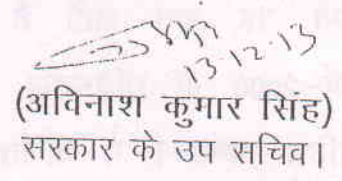 13.12.13
(अविनाश कुमार सिंह)
सरकार के उप सचिव।